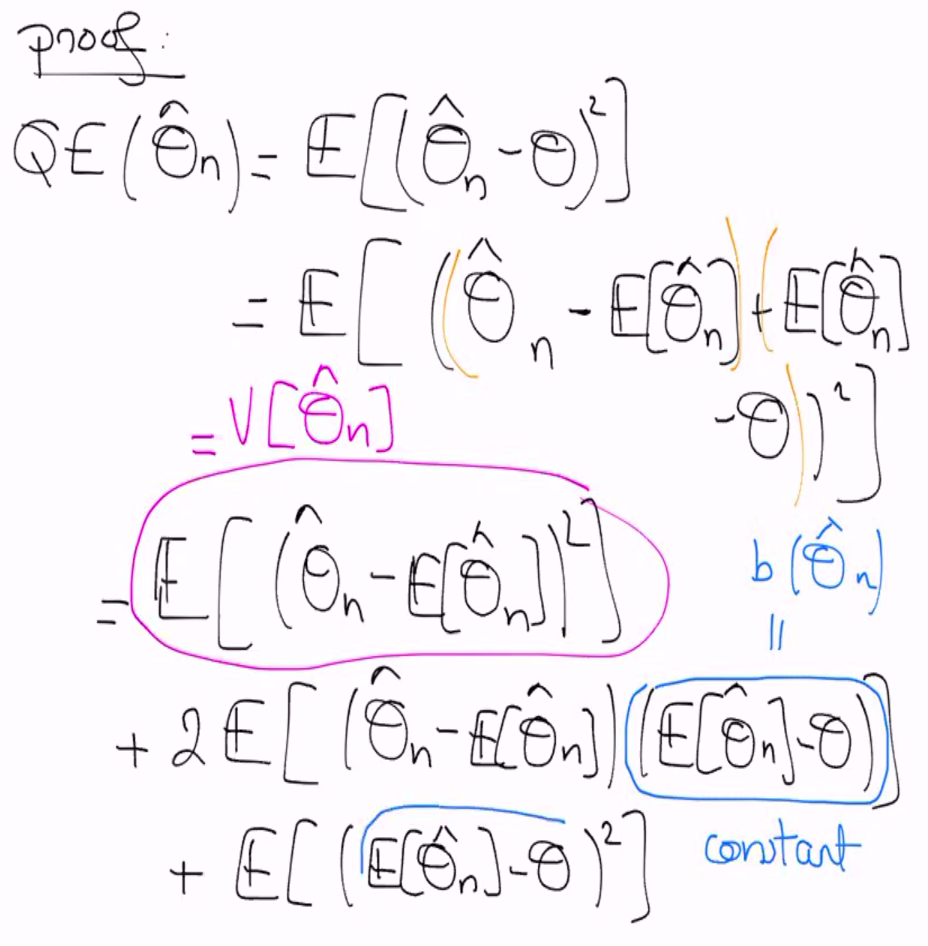 proof:
QE(θ̂n) = E[(θ̂n - θ)²]
= E[((θ̂n - E[θ̂n]) + (E[θ̂n]
- θ))²]
= V[θ̂n]
= E[(θ̂n - E[θ̂n])²]
b(θ̂n)
=
+ 2E[(θ̂n - E[θ̂n])(E[θ̂n] - θ)]
constant
+ E[(E[θ̂n] - θ)²]